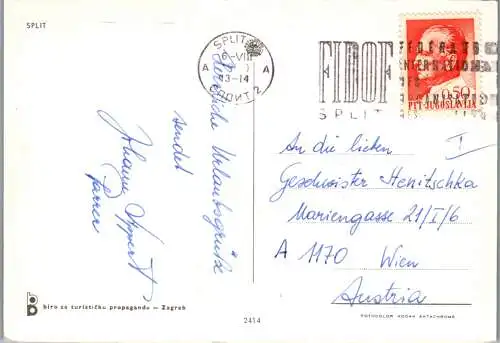 SPLIT
Herzliche Urlaubsgrüße
sendet
Johann
Pfarrer
SPLIT 2
VIII
13-14
A A
СПЛИТ 2
FIBOF
SPLIT
0.50
PTT-JUGOSLAVIJA
An die lieben I
Geschwister Henitschka
Mariengasse 21/I/6
A 1170 Wien
Austria
biro za turističku propagandu — Zagreb
2414
FOTOCOLOR KODAK EKTACHROME